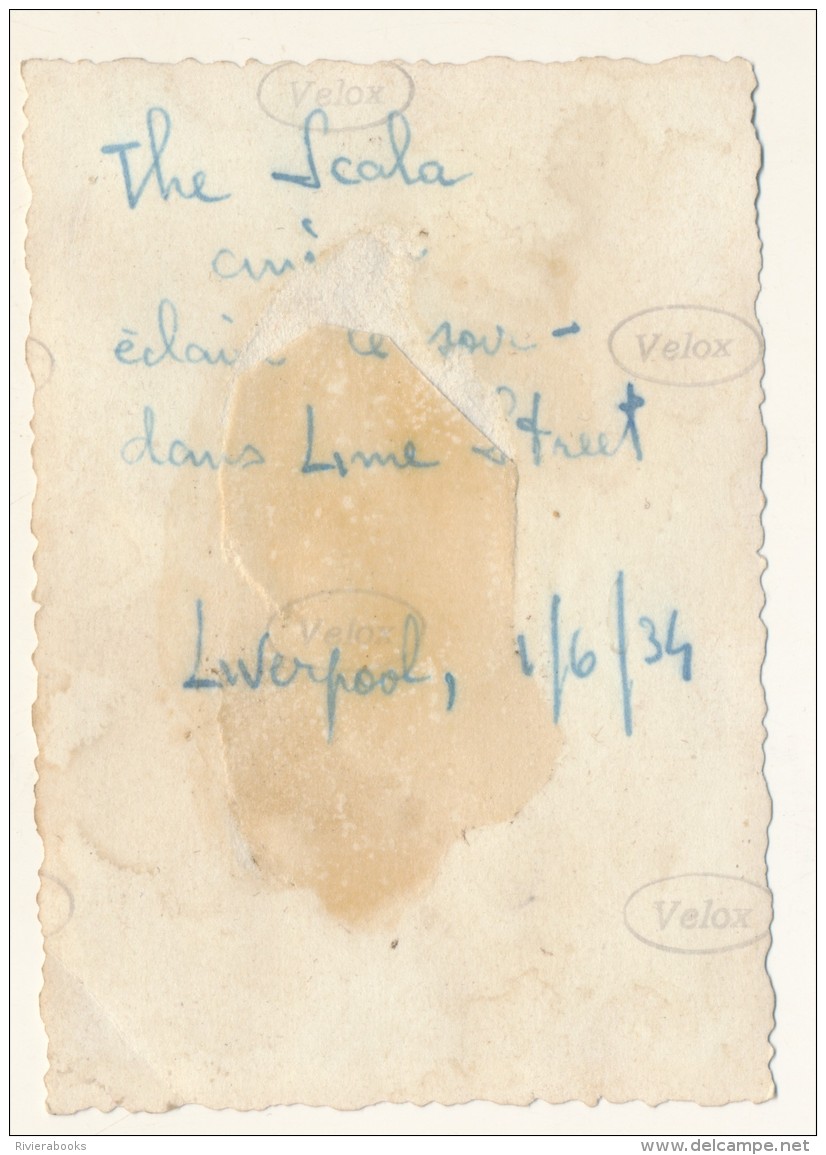 Velox
The Scala
le soir -
Velox
dans Lime Street
Velox
Liverpool, 1/6/34
Velox
Rivierabooks
www.delcampe.net